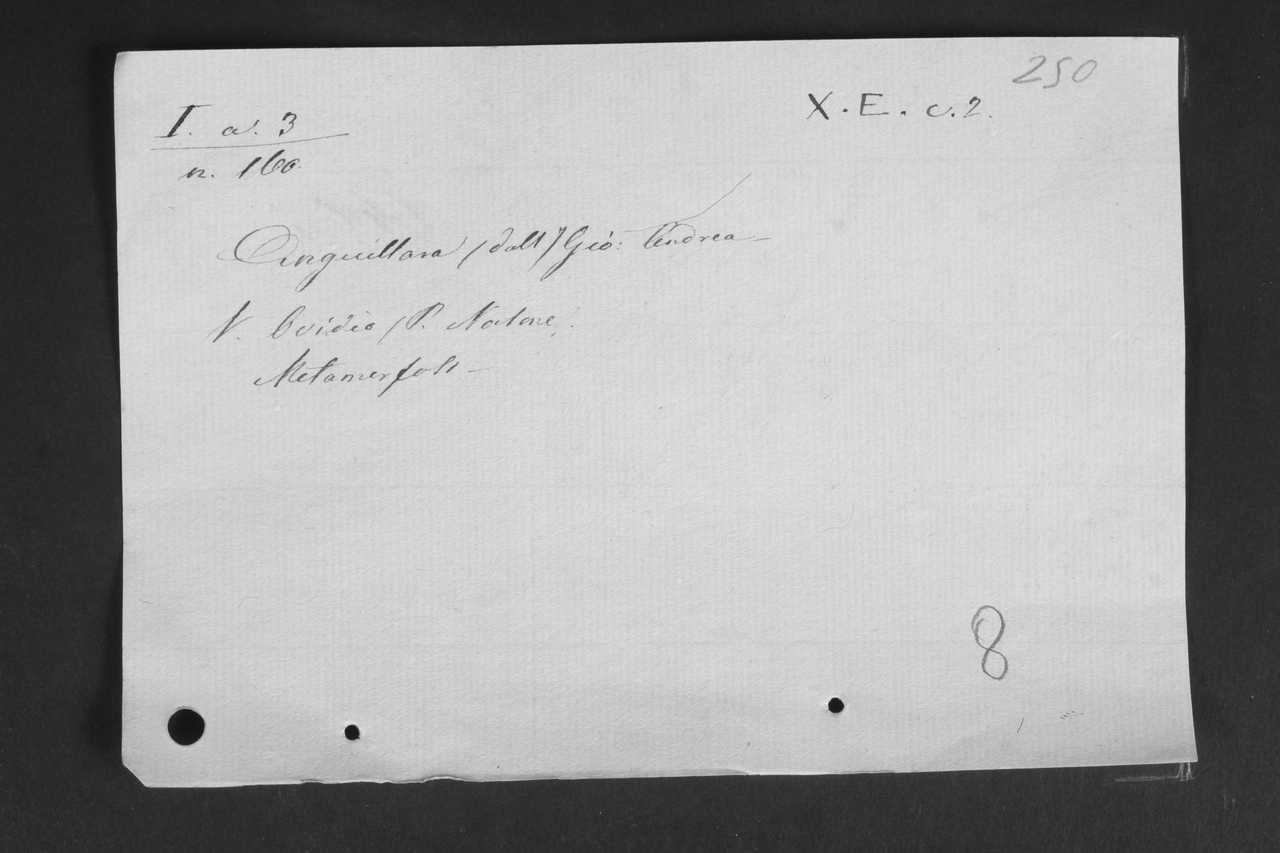 250
I. a. 3
X. E. c. 2.
n. 160.
Anguillara (dall') Gio: Andrea
V. Ovidio (P. Nasone).
Metamorfosi
8